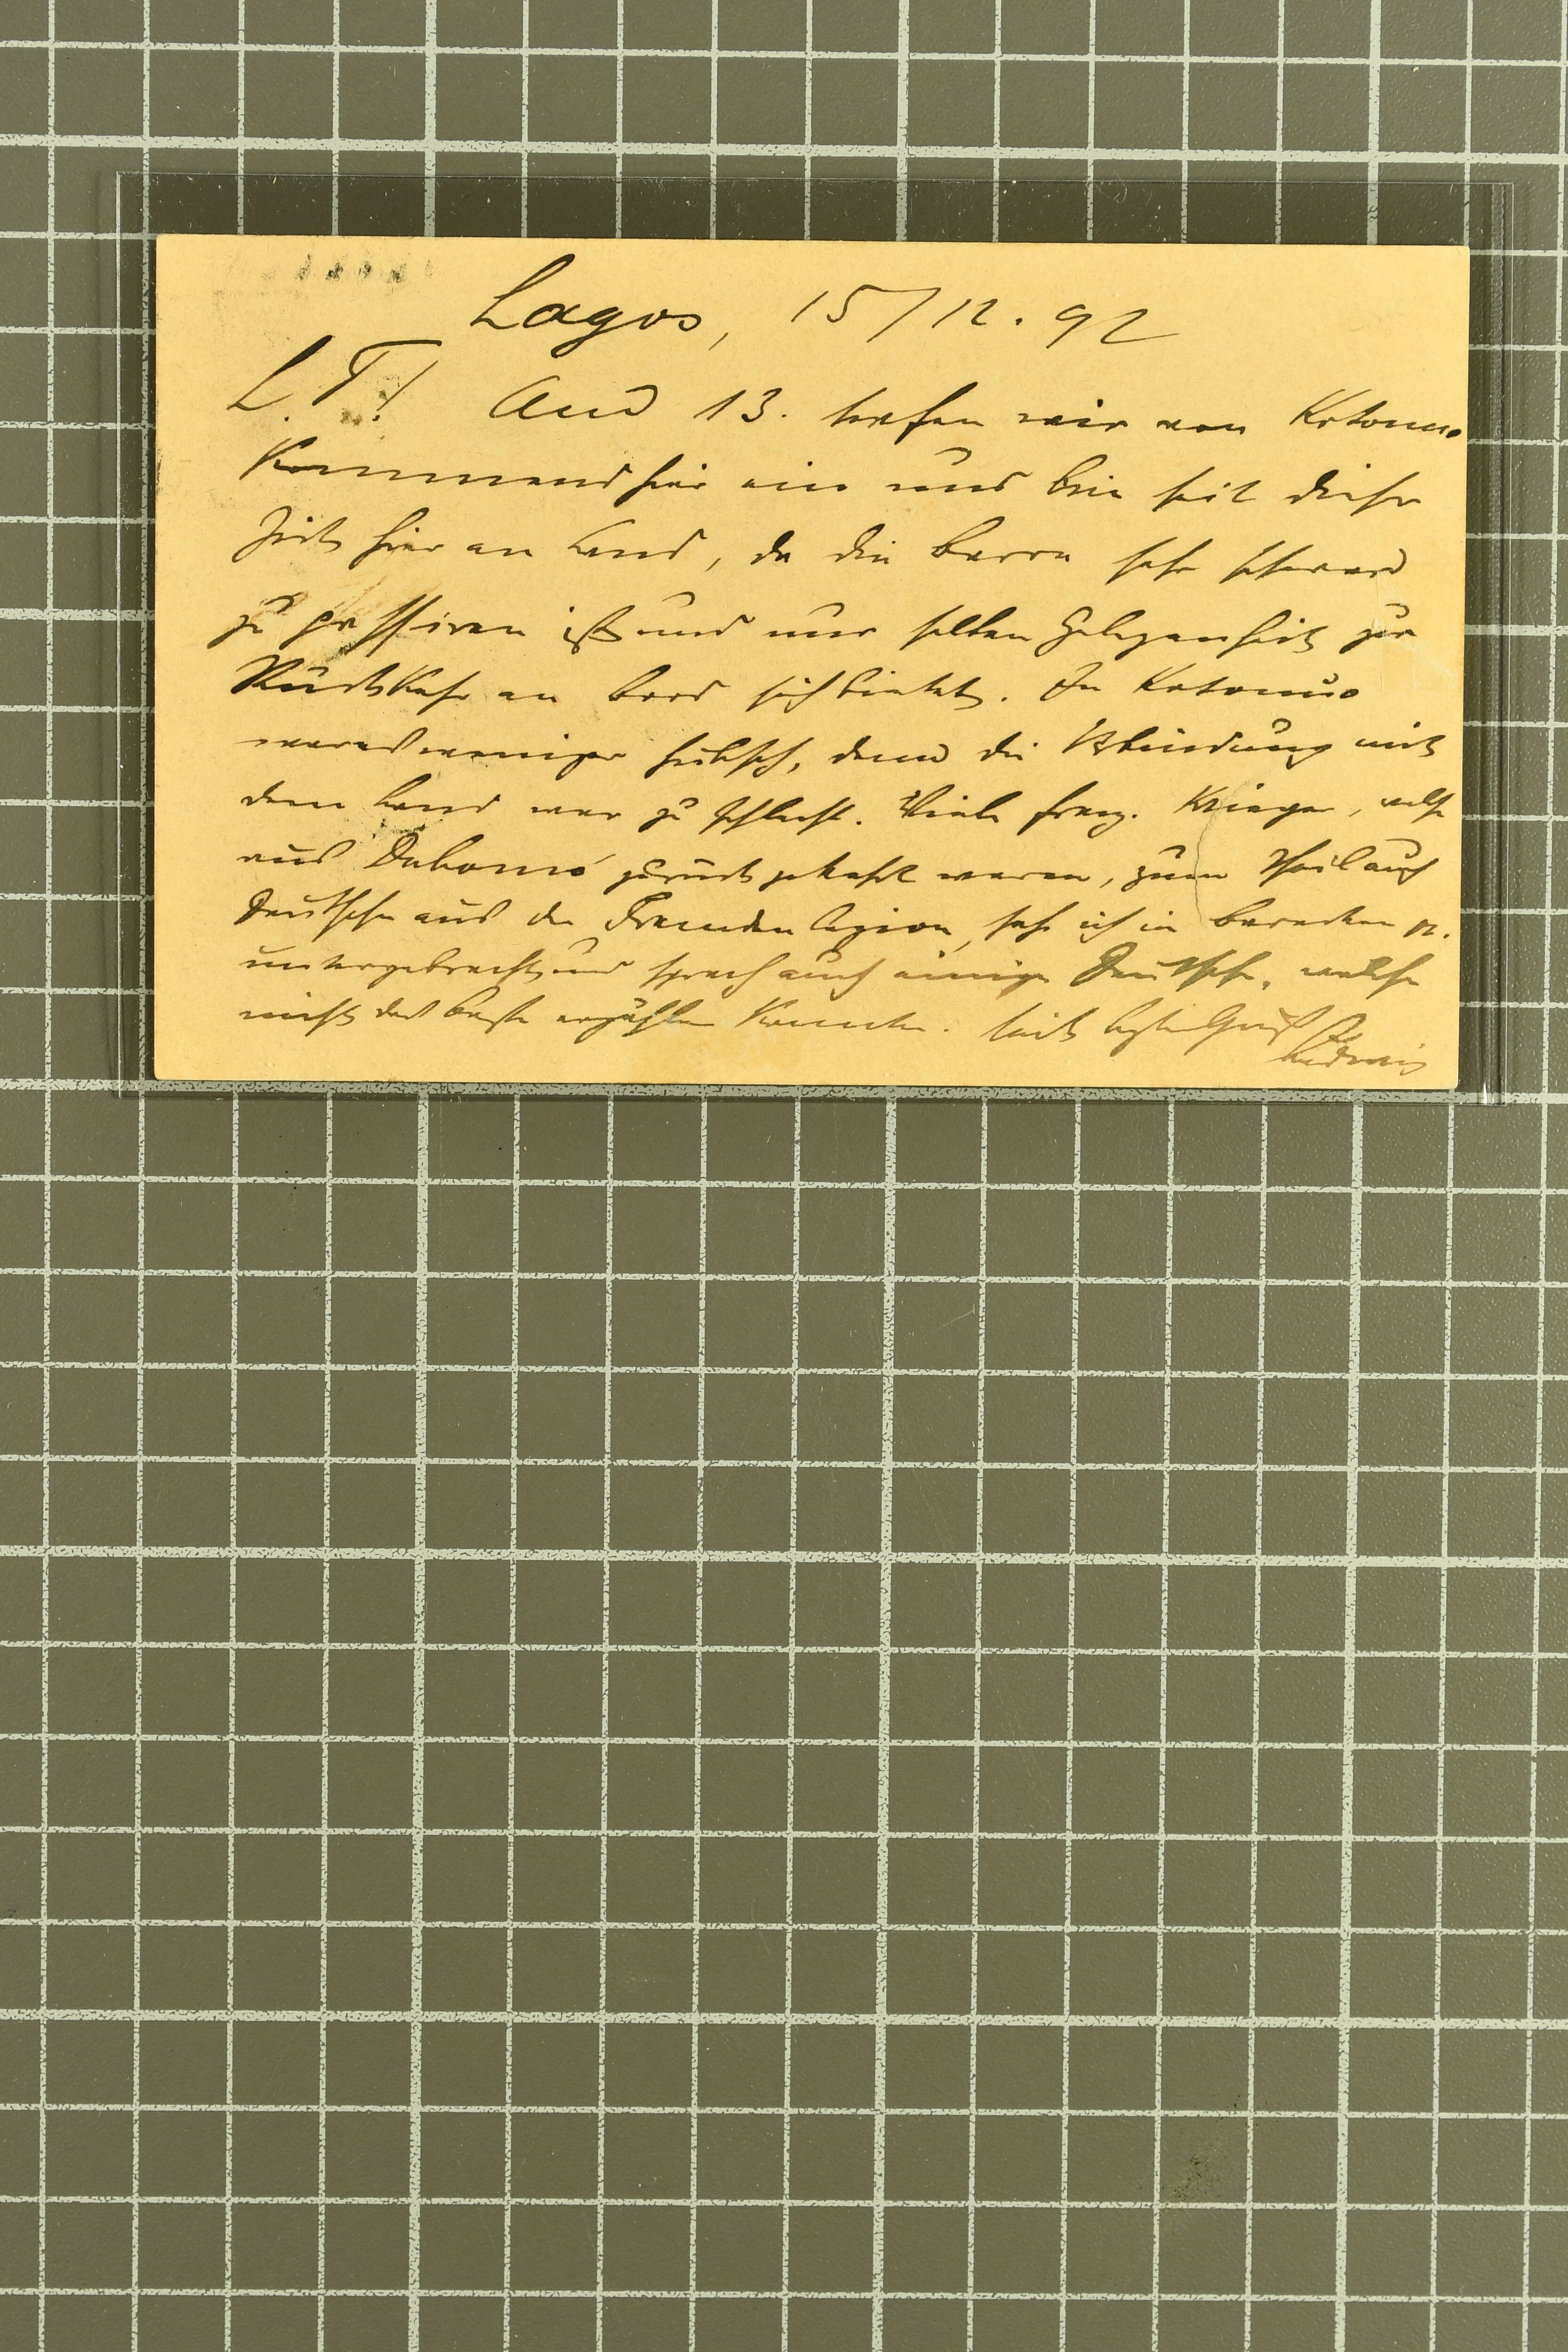 Lagos, 15/12.92
L. T.! Am 13. trafen wir von Kotonuo
kommend hier ein und bin seit dieser
Zeit hier an Land, da die Barre sehr schwer
zu passiren ist und nur selten Gelegenheit zur
Rückkehr an Bord sich bietet. In Kotonuo
war es weniger hübsch, denn die Verbindung mit
dem Land war zu schlecht. Viele franz. Krieger, welche
aus Dahomé zurückgekehrt waren, zum Theil auch
Deutsche aus der Fremdenlegion, sah ich in Baracken
untergebracht und sprach auch einige Deutsche, welche
nicht das beste erzählen konnten. Seid bestens gegrüßt
Ludwig